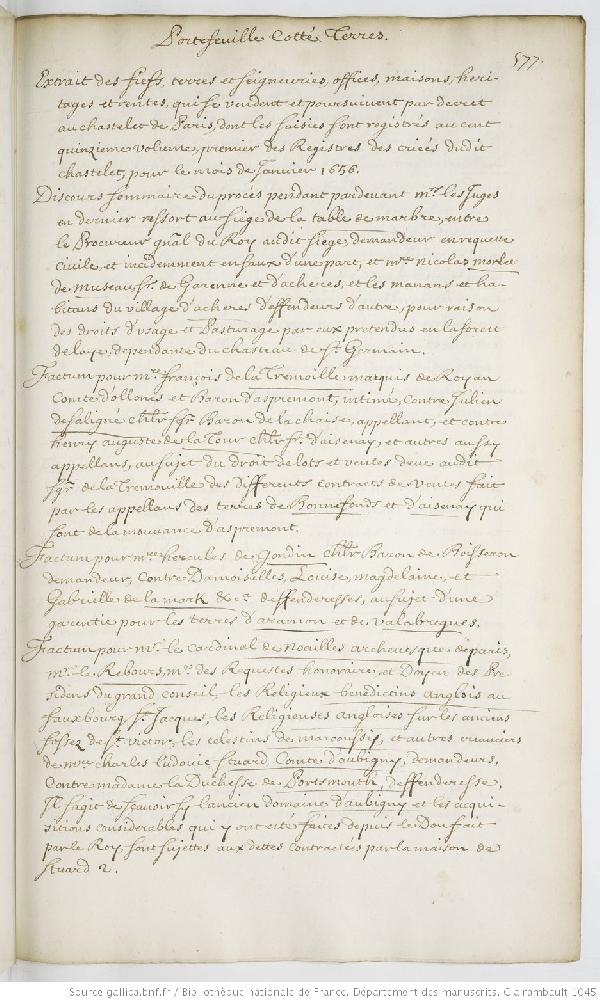 Portefeuille Cotté Terres.
577.
Extrait des fiefs, terres et seigneuries, offices, maisons, heri-
tages et rentes, qui se vendent et poursuivent par decret
au chastelet de Paris, dont les saisies sont registrés au cent
quinzieme volume, premier des Registres des criées dudit
chastelet, pour le mois de Janvier 1656.
Discours sommaire du procés pendant pardevant mrs. les Juges
en dernier ressort au siége de la table de marbre, entre
le Procureur gñal du Roy audit siege, demandeur en requeste
civile, et incidemment en faux d'une part, et mre. Nicolas morlet
de museau, sr. de Garenne et d'acheres, et les manans et ha-
bitans du village d'acheres deffendeurs d'autre, pour raison
des droits d'usage et Pasturage par eux pretendus en la forest
de laye, dependante du chasteau de St. Germain.
Factum pour mre. françois de la Tremoille marquis de Royan
Comte d'ollones et Baron d'aspremont, intimé, contre Julien
de saligné chlr. sgr. Baron de la chaise, appellant, et contre
henry auguste de la Tour chlr. sr. d'aisenay, et autres aussy
appellans, au sujet du droit de lots et ventes deue audit
sgr. de la Tremouille des differents contracts de ventes fait
par les appellans des terres de Bonnefonds et d'aisenay qui
sont de la mouvance d'aspremont.
Factum pour mre. hercules de Gondin chlr. Baron de Boisseron
demandeur, contre Damoiselles, Louise, magdelaine, et
Gabrielle de la mark &c. deffenderesses, au sujet d'une
garentie pour les terres d'aramon et de valabregues.
Factum pour mr. le cardinal de noailles archevesque de paris,
mr. le Rebours, me. des Requestes honoraire, et Doyen des Pre-
sidens du grand conseil, les Religieux benedictins anglois au
fauxbourg St. Jacques, les Religieuses angloises sur les anciens
fossez de St. victor, les celestins de marcoussis, et autres creanciers
de mre. charles ludovic stuard, Comte d'aubigny, demandeurs,
Contre madame la Duchesse de Portsmouth, deffenderesse,
Il s'agit de sçavoir sy l'ancien domaine d'aubigny et les acqui-
sitions considerables qui y ont esté faites depuis le Don fait
par le Roy, sont sujettes aux dettes contractées par la maison de
stuard 2.
Source gallica.bnf.fr / Bibliothèque nationale de France. Département des manuscrits. Clairambault 1045